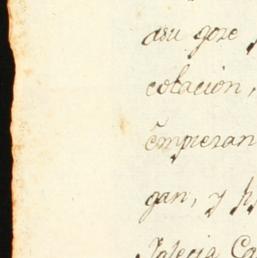 asu goze
colacion,
empiezan
gan, y
Iglesia Ca